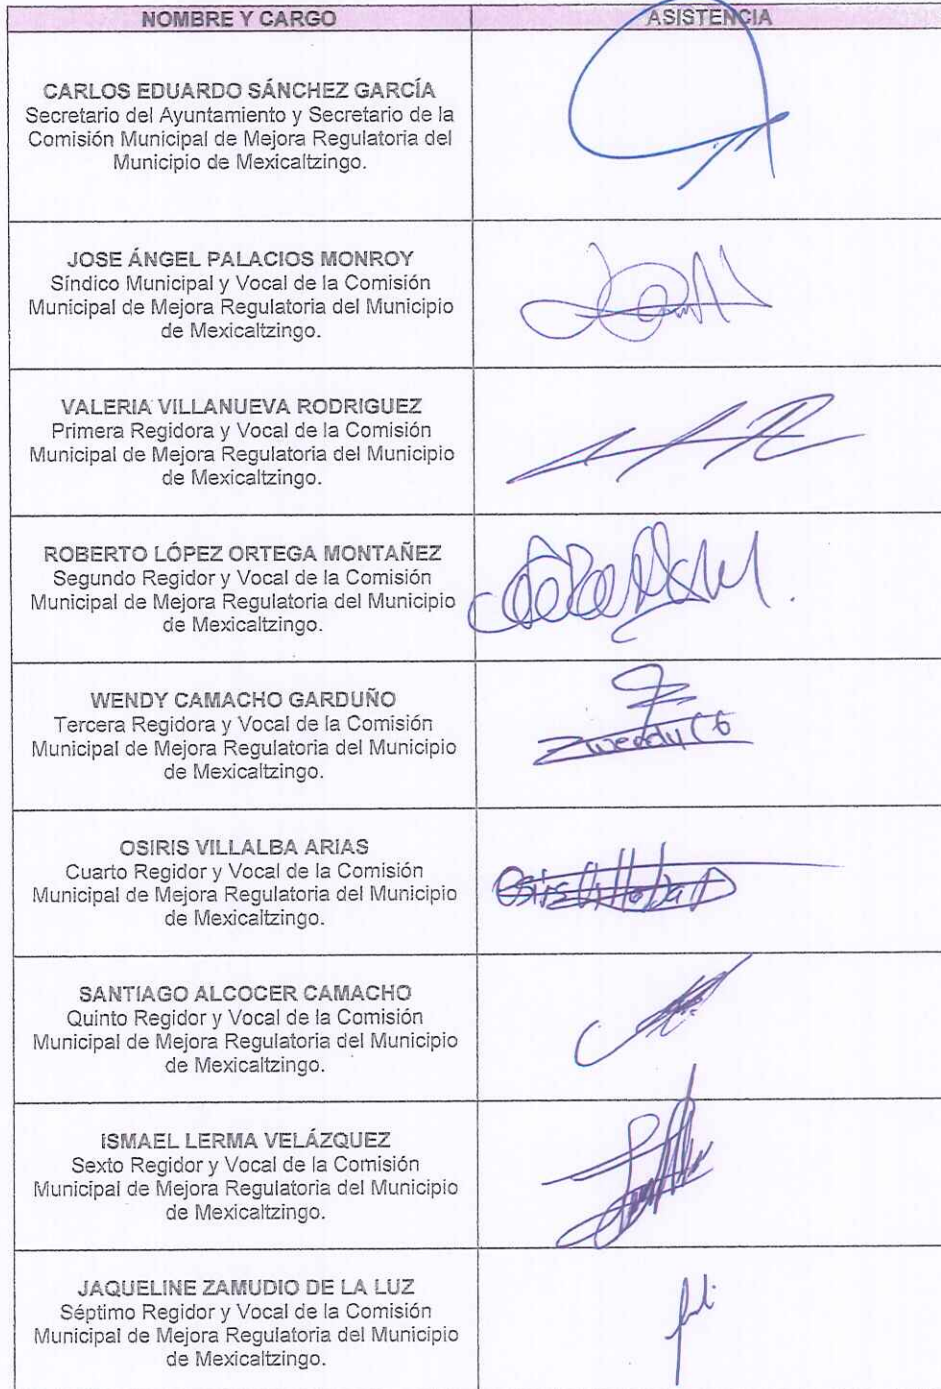 NOMBRE Y CARGO
ASISTENCIA
CARLOS EDUARDO SÁNCHEZ GARCÍA
Secretario del Ayuntamiento y Secretario de la
Comisión Municipal de Mejora Regulatoria del
Municipio de Mexicaltzingo.
JOSE ÁNGEL PALACIOS MONROY
Síndico Municipal y Vocal de la Comisión
Municipal de Mejora Regulatoria del Municipio
de Mexicaltzingo.
VALERIA VILLANUEVA RODRIGUEZ
Primera Regidora y Vocal de la Comisión
Municipal de Mejora Regulatoria del Municipio
de Mexicaltzingo.
ROBERTO LÓPEZ ORTEGA MONTAÑEZ
Segundo Regidor y Vocal de la Comisión
Municipal de Mejora Regulatoria del Municipio
de Mexicaltzingo.
WENDY CAMACHO GARDUÑO
Tercera Regidora y Vocal de la Comisión
Municipal de Mejora Regulatoria del Municipio
de Mexicaltzingo.
wendy CG
OSIRIS VILLALBA ARIAS
Cuarto Regidor y Vocal de la Comisión
Municipal de Mejora Regulatoria del Municipio
de Mexicaltzingo.
SANTIAGO ALCOCER CAMACHO
Quinto Regidor y Vocal de la Comisión
Municipal de Mejora Regulatoria del Municipio
de Mexicaltzingo.
ISMAEL LERMA VELÁZQUEZ
Sexto Regidor y Vocal de la Comisión
Municipal de Mejora Regulatoria del Municipio
de Mexicaltzingo.
JAQUELINE ZAMUDIO DE LA LUZ
Séptimo Regidor y Vocal de la Comisión
Municipal de Mejora Regulatoria del Municipio
de Mexicaltzingo.